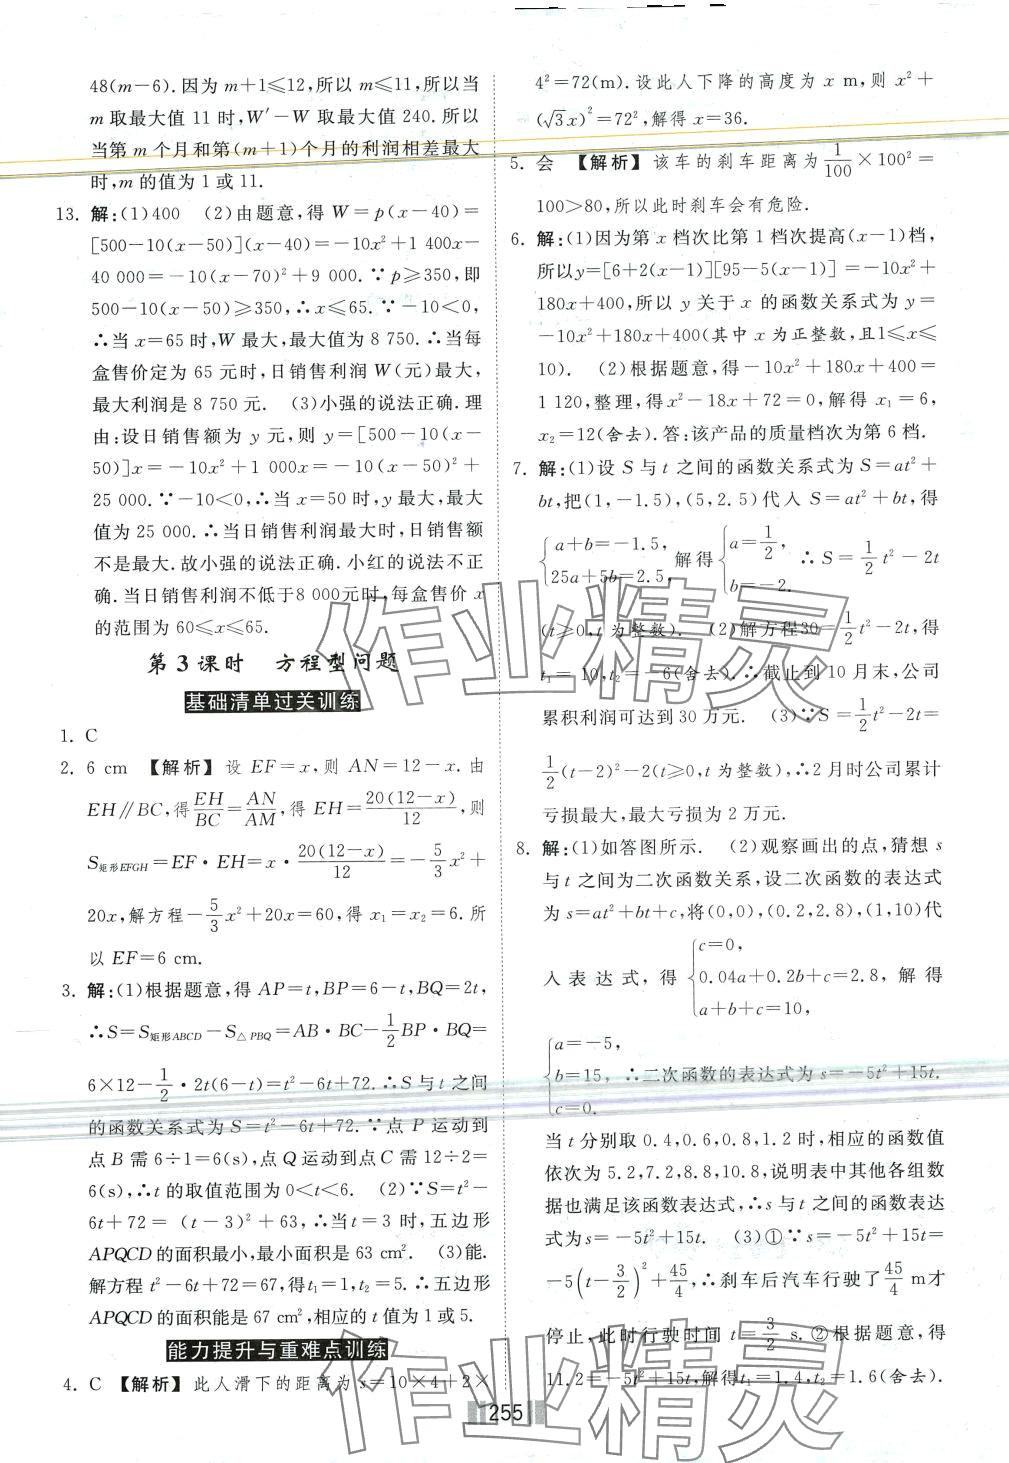 48(m－6). 因为 m＋1≤12,所以 m≤11,所以当
m 取最大值 11 时,W′－W 取最大值 240. 所以
当第 m 个月和第(m＋1)个月的利润相差最大
时,m 的值为 1 或 11.
13. 解:(1)400　(2)由题意,得 W＝p(x－40)＝
[500－10(x－50)](x－40)＝－10x²＋1 400x－
40 000＝－10(x－70)²＋9 000. ∵p≥350,即
500－10(x－50)≥350,∴x≤65. ∵－10<0,
∴当 x＝65 时,W 最大,最大值为 8 750. ∴当每
盒售价定为 65 元时,日销售利润 W(元)最大,
最大利润是 8 750 元.　(3)小强的说法正确. 理
由:设日销售额为 y 元,则 y＝[500－10(x－
50)]x＝－10x²＋1 000x＝－10(x－50)²＋
25 000. ∵－10<0,∴当 x＝50 时,y 最大,最大
值为 25 000. ∴当日销售利润最大时,日销售额
不是最大. 故小强的说法正确. 小红的说法不正
确. 当日销售利润不低于8 000元时,每盒售价 x
的范围为 60≤x≤65.
第 3 课时　方程型问题
基础清单过关训练
1. C
2. 6 cm　【解析】 设 EF＝x,则 AN＝12－x. 由
EH∥BC,得EH/BC＝AN/AM,得 EH＝20(12－x)/12,则
S矩形EFGH＝EF·EH＝x·20(12－x)/12＝－5/3x²＋
20x,解方程－5/3x²＋20x＝60,得 x₁＝x₂＝6. 所
以 EF＝6 cm.
3. 解:(1)根据题意,得 AP＝t,BP＝6－t,BQ＝2t,
∴S＝S矩形ABCD－S△PBQ＝AB·BC－1/2BP·BQ＝
6×12－1/2·2t(6－t)＝t²－6t＋72. ∴S 与 t 之间
的函数关系式为 S＝t²－6t＋72. ∵点 P 运动到
点 B 需 6÷1＝6(s),点 Q 运动到点 C 需 12÷2＝
6(s),∴t 的取值范围为 0<t<6.　(2)∵S＝t²－
6t＋72＝(t－3)²＋63,∴当 t＝3 时,五边形
APQCD 的面积最小,最小面积是 63 cm².　(3)能.
解方程 t²－6t＋72＝67,得t₁＝1,t₂＝5. ∴五边形
APQCD 的面积能是 67 cm²,相应的 t 值为 1 或 5.
能力提升与重难点训练
4. C　【解析】 此人滑下的距离为 s＝10×4＋2×
4²＝72(m). 设此人下降的高度为 x m,则 x²＋
(√3x)²＝72²,解得 x＝36.
5. 会　【解析】 该车的刹车距离为1/100×100²＝
100>80,所以此时刹车会有危险.
6. 解:(1)因为第 x 档次比第 1 档次提高(x－1)档,
所以y＝[6＋2(x－1)][95－5(x－1)]＝－10x²＋
180x＋400,所以 y 关于 x 的函数关系式为 y＝
－10x²＋180x＋400(其中 x 为正整数,且1≤x≤
10).　(2)根据题意,得－10x²＋180x＋400＝
1 120,整理,得x²－18x＋72＝0,解得 x₁＝6,
x₂＝12(舍去). 答:该产品的质量档次为第 6 档.
7. 解:(1)设 S 与 t 之间的函数关系式为 S＝at²＋
bt,把(1,－1.5),(5,2.5)代入 S＝at²＋bt,得
{a＋b＝－1.5, 25a＋5b＝2.5, 解得{a＝1/2, b＝－2. ∴S＝1/2t²－2t
(t≥0,t 为整数).　(2)解方程30＝1/2t²－2t,得
t₁＝10,t₂＝－6(舍去). ∴截止到 10 月末,公司
累积利润可达到 30 万元.　(3)∵S＝1/2t²－2t＝
1/2(t－2)²－2(t≥0,t 为整数),∴2 月时公司累计
亏损最大,最大亏损为 2 万元.
8. 解:(1)如答图所示.　(2)观察画出的点,猜想 s
与 t 之间为二次函数关系,设二次函数的表达式
为 s＝at²＋bt＋c,将(0,0),(0.2,2.8),(1,10)代
入表达式,得{c＝0, 0.04a＋0.2b＋c＝2.8, a＋b＋c＝10, 解得
{a＝－5, b＝15, c＝0. ∴二次函数的表达式为 s＝－5t²＋15t.
当 t 分别取 0.4,0.6,0.8,1.2 时,相应的函数值
依次为 5.2,7.2,8.8,10.8,说明表中其他各组数
据也满足该函数表达式,∴s 与 t 之间的函数表达
式为s＝－5t²＋15t.　(3)①∵s＝－5t²＋15t＝
－5(t－3/2)²＋45/4,∴刹车后汽车行驶了45/4 m才
停止,此时行驶时间 t＝3/2 s. ②根据题意,得
11.2＝－5t²＋15t,解得t₁＝1.4,t₂＝1.6(舍去).
255
作业精灵
作业精灵